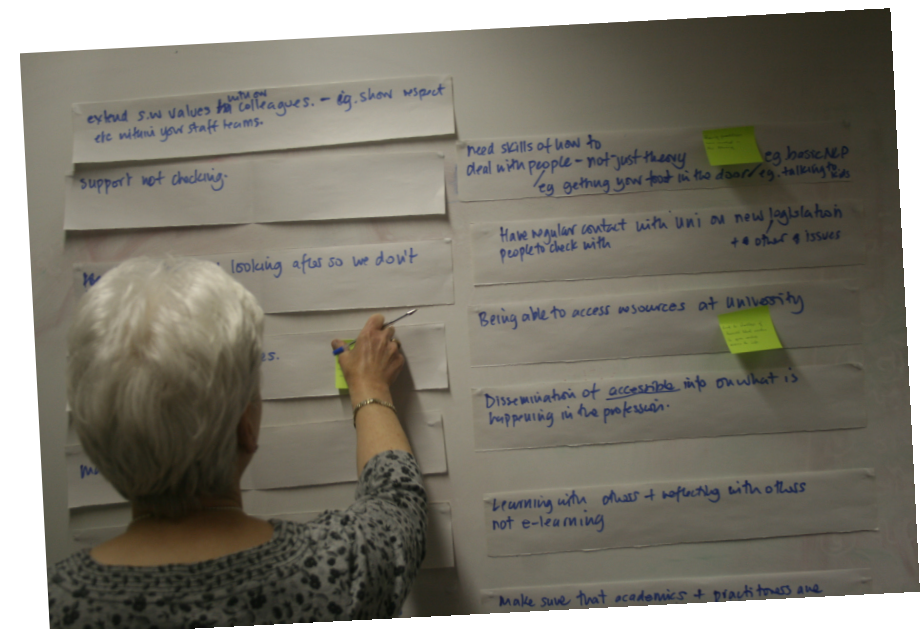 extend s.w values to with our colleagues. - eg. show respect
etc within your staff teams.
support not checking.
looking after so we don't
es.
need skills of how to
deal with people - not just theory
eg basic NLP
eg getting your foot in the door
eg. talking to
Have regular contact with Uni on new legislation
people to check with
+ other issues
Being able to access resources at University
Dissemination of accessible info on what is
happening in the profession.
Learning with others + reflecting with others
not e-learning
Make sure that academics + practitioners are